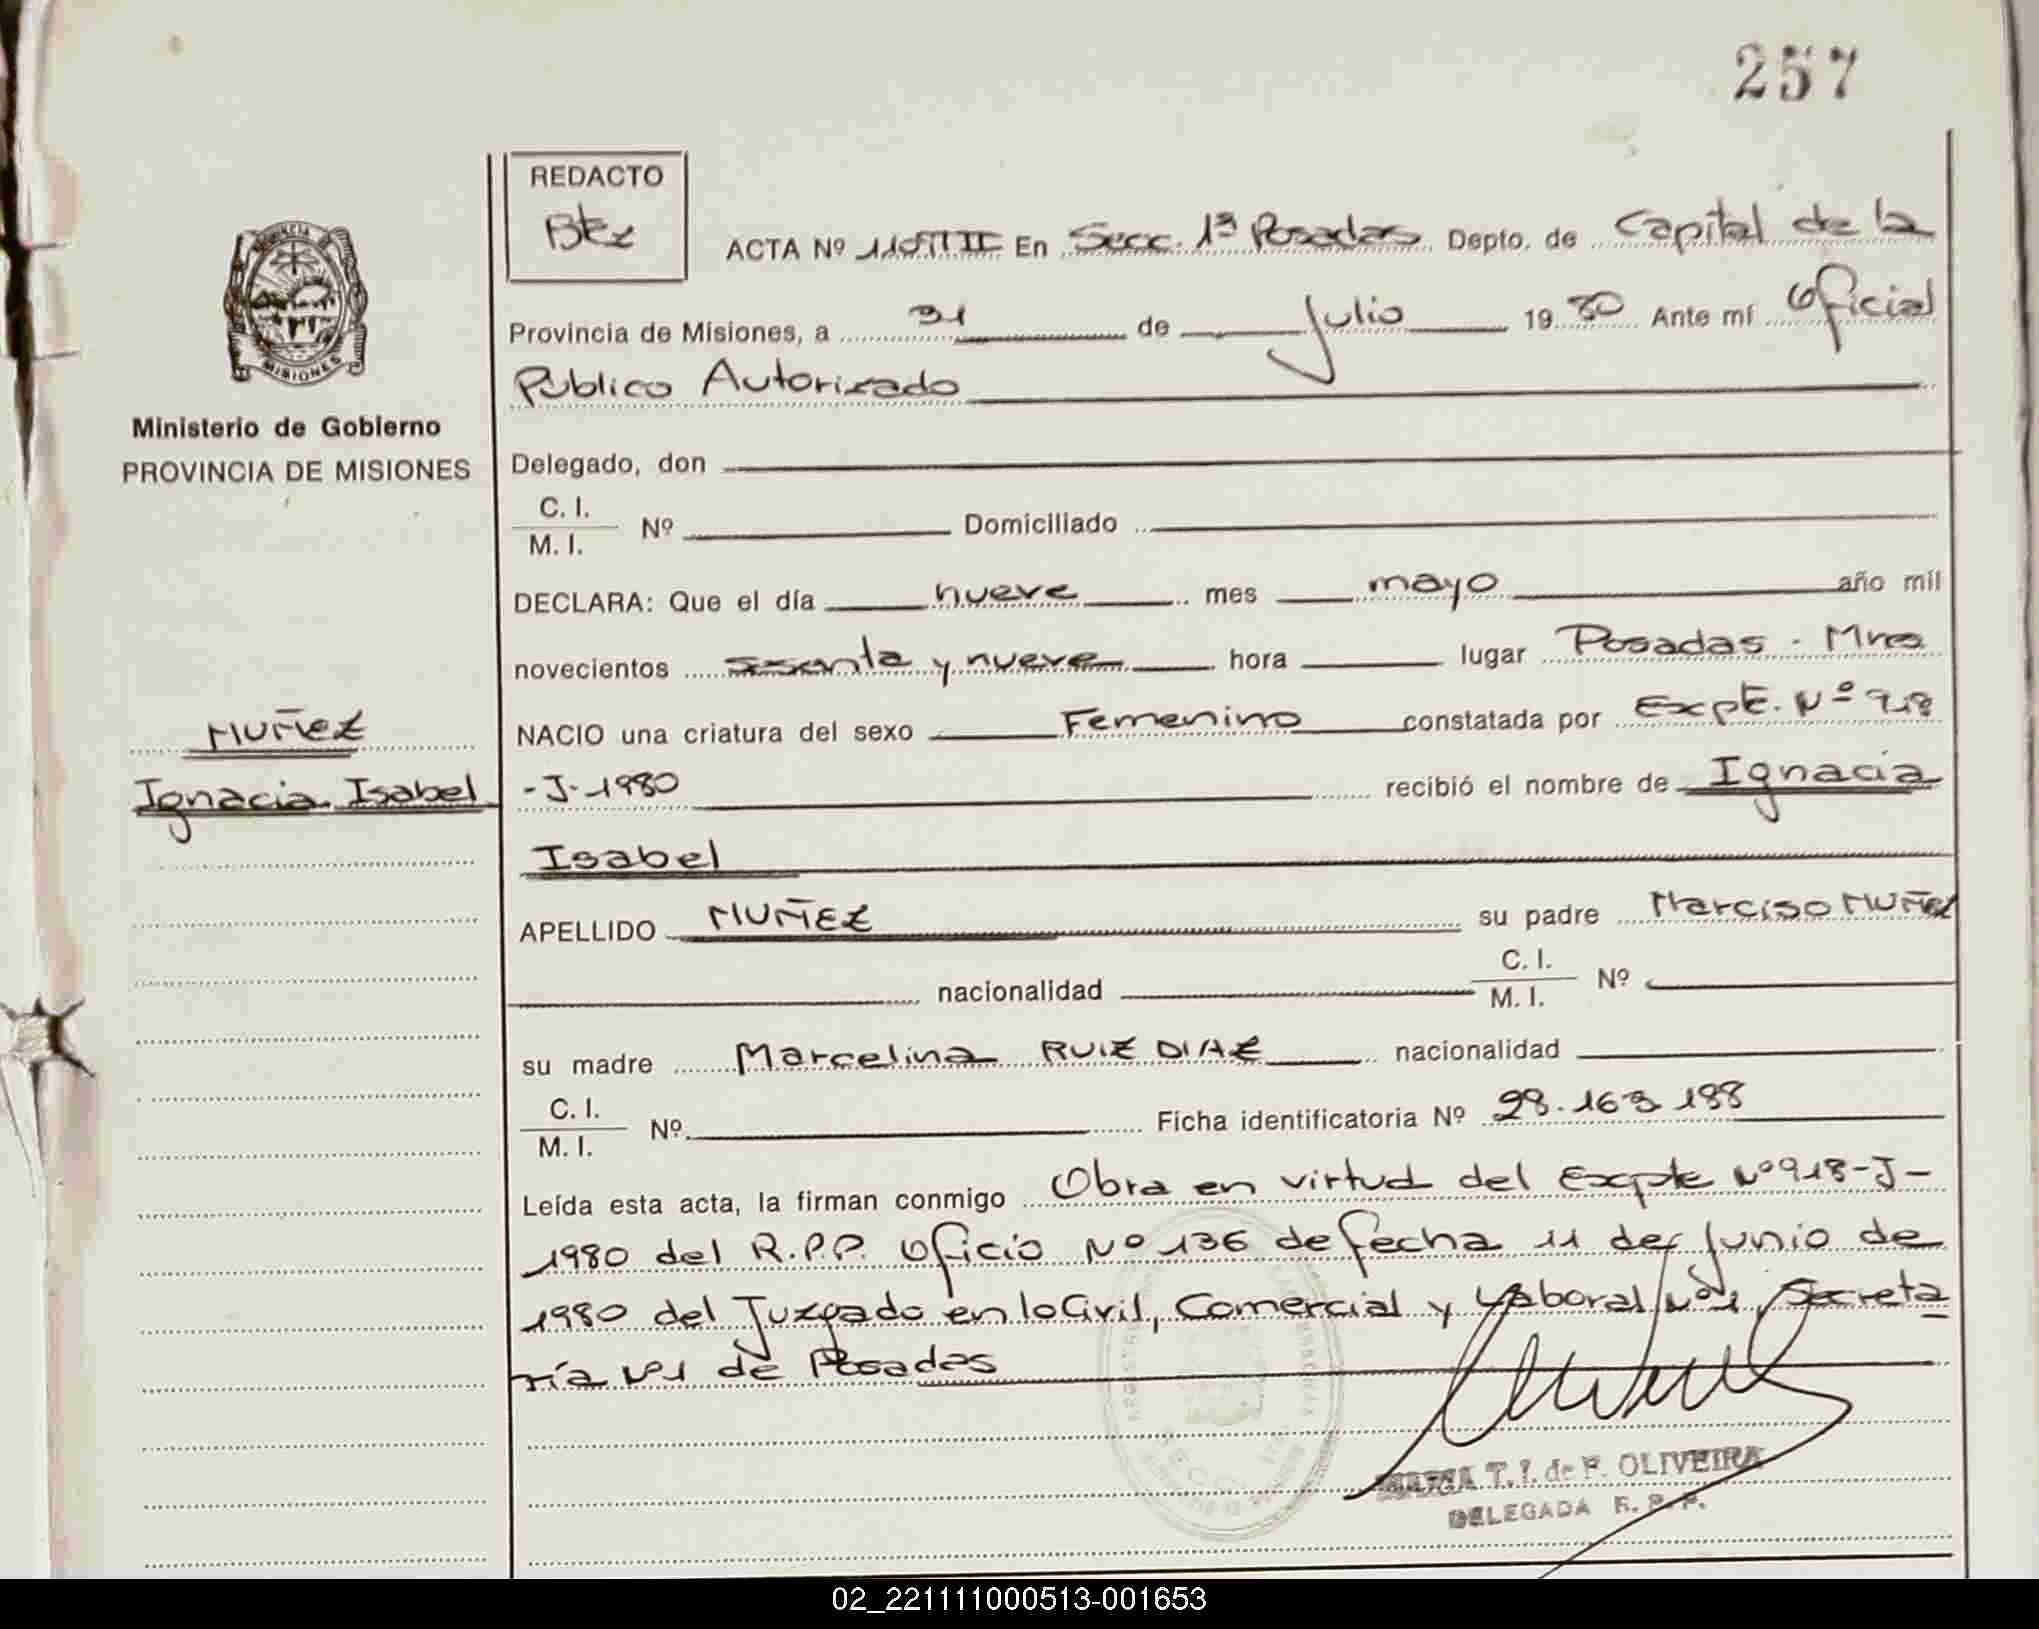 257
REDACTO
Btz
ACTA Nº En Secc. 1ª Posadas Depto. de Capital de la
Provincia de Misiones, a 31 de Julio 1980 Ante mí Oficial
Publico Autorizado
Ministerio de Gobierno
PROVINCIA DE MISIONES
MISIONES
Delegado, don
C. I.
M. I. Nº Domiciliado
DECLARA: Que el día nueve mes mayo año mil
novecientos sesenta y nueve hora lugar Posadas - Mnes
NACIO una criatura del sexo Femenino constatada por Expte. Nº 918
-J-1980 recibió el nombre de Ignacia
Isabel
MUÑEZ
Ignacia Isabel
APELLIDO MUÑEZ su padre Narciso MUÑEZ
nacionalidad C. I.
M. I. Nº
su madre Marcelina RUIZ DIAZ nacionalidad
C. I.
M. I. Nº. Ficha identificatoria Nº 28.163.188
Leída esta acta, la firman conmigo Obra en virtud del Expte Nº 918-J-
1980 del R.P.P. Oficio Nº 136 de fecha 11 de Junio de
1980 del Juzgado en lo Civil, Comercial y Laboral Nº 1, Secreta
ría Nº 1 de Posadas
T. I. de F. OLIVEIRA
DELEGADA R. P. P.
02_221111000513-001653